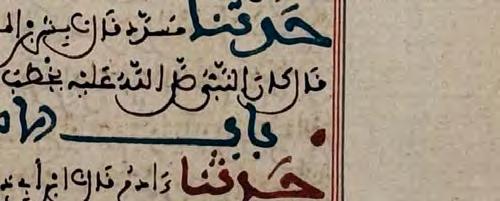 حدثنا مسدد قال نا بشر بن الم
قال كان النبي صلى الله عليه يخطب
باب
حدثنا ءادم قال نا ابن أبي ذ